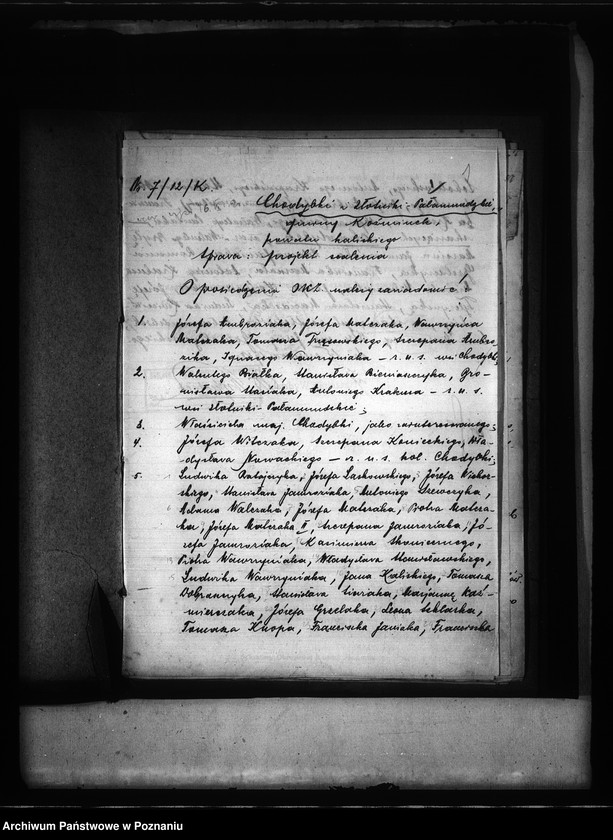 Nr. 7/12/K.
1/
Chodybki i Złotniki-Pałamundzkie,
gminy Koźminek,
powiatu kaliskiego
Sprawa: projekt scalenia
O posiedzeniu OKZ. należy zawiadomić:
1. Józefa Ambroziaka, Józefa Matczaka, Wawrzyńca
Matczaka, Tomasza Trzęsowskiego, Szczepana Ambro-
ziaka, Ignacego Wawrzyniaka – r. u. s. wsi Chodybki,
2. Walentego Białka, Stanisława, Bro-
nisława Stasiaka, Antoniego Krakusa – r. u. s.
wsi Złotniki-Pałamundzkie;
3. Właściciela maj. Chodybki, jako zainteresowanego;
4. Józefa Witczaka, Szczepana Konieckiego, Wła-
dysława Nowackiego – r. u. s. kol. Chodybki;
5. Ludwika Ratajczyka, Józefa Laskowskiego, Józefa Wichor-
skiego, Stanisława Jamroziaka, Antoniego Szewczyka,
Adama Walczaka, Józefa Matczaka, Piotra Matcza-
ka, Józefa Matczaka II, Szczepana Jamroziaka, Jó-
zefa Jamroziaka, Kazimierza,
Piotra Wawrzyniaka, Władysława Stanisławskiego,
Ludwika Wawrzyniaka, Jana Kaliskiego, Tomasza
Dobraszczyka, Stanisława, Marjannę Kaź-
mierczaka, Józefa Grzelaka, Leona,
Tomasza Knopa, Franciszka Janiaka, Franciszka
Archiwum Państwowe w Poznaniu